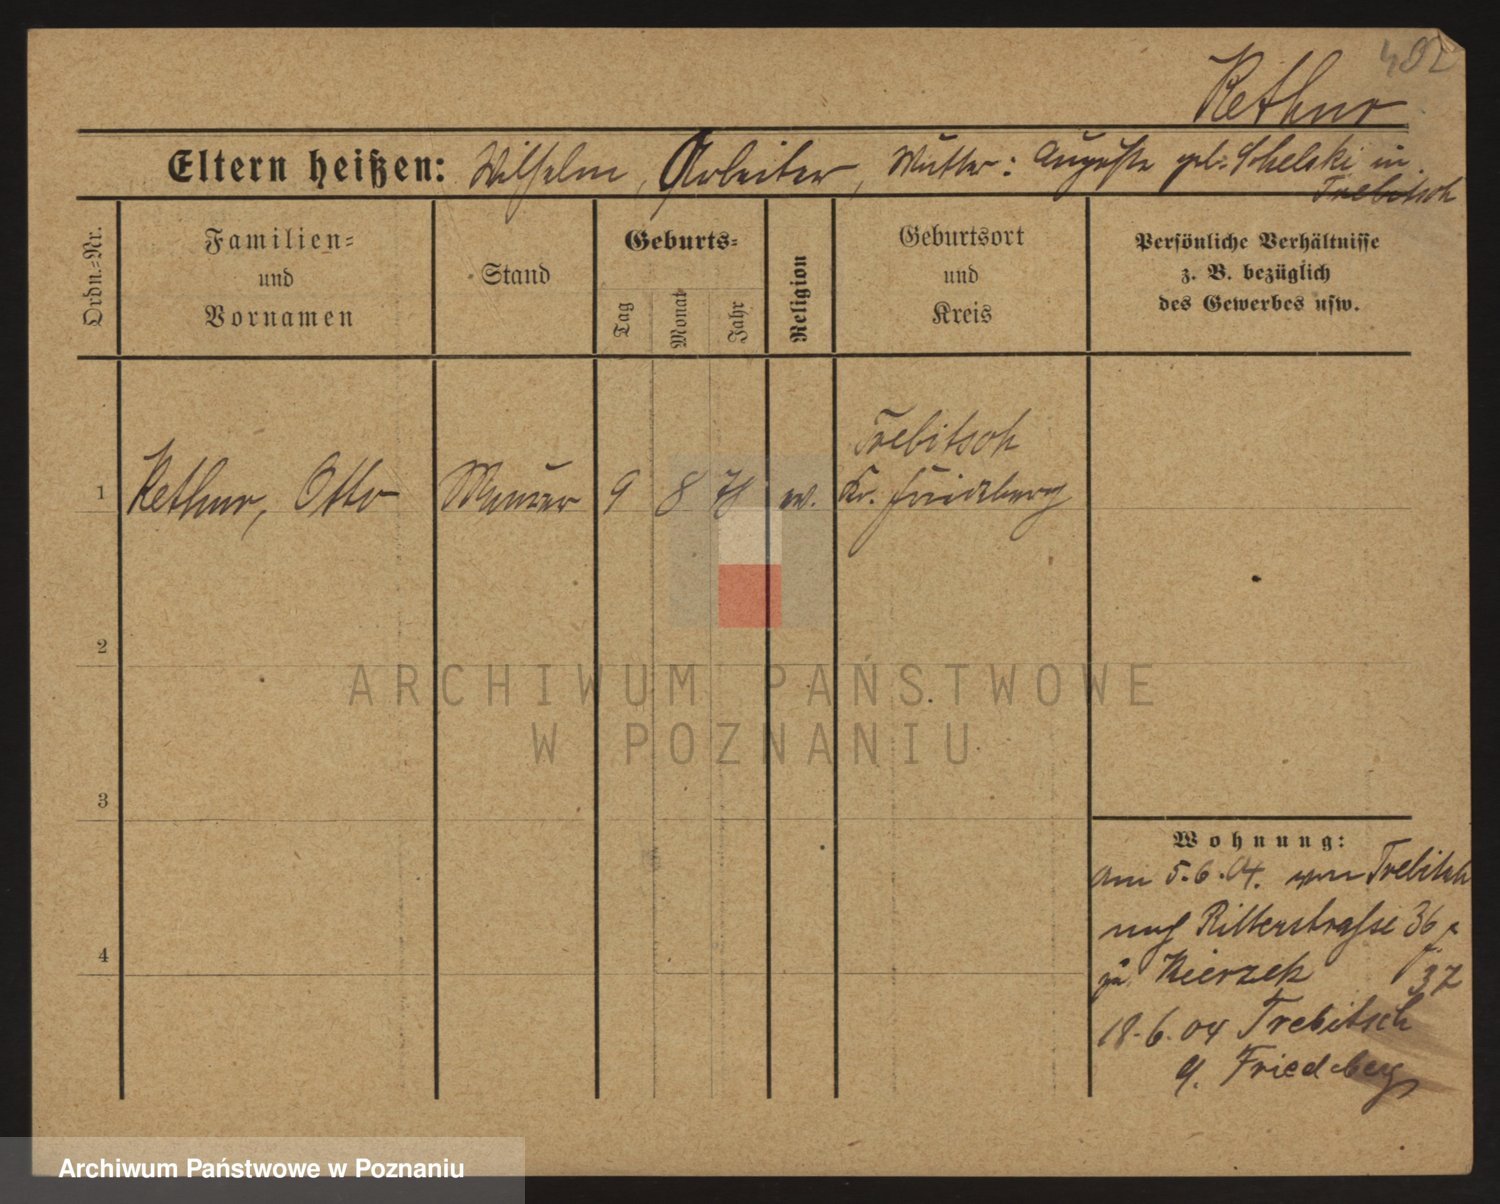 482
Rethur
Eltern heißen: Wilhelm, Arbeiter, Mutter: Auguste geb. Schelski in
Trebitsch
Ordn.-Nr.
Familien-
und
Vornamen
Stand
Geburts-
Tag
Monat
Jahr
Religion
Geburtsort
und
Kreis
Persönliche Verhältnisse
z. B. bezüglich
des Gewerbes usw.
Trebitsch
1 Rethur, Otto Maurer 9 8 Kr. Friedeberg
2
3
4
ARCHIWUM PAŃSTWOWE
W POZNANIU
Wohnung:
am 5.6.04. von Trebitsch
nach Ritterstraße 36
zu Kierzek 37
18.6.04 Trebitsch
Friedeberg
Archiwum Państwowe w Poznaniu